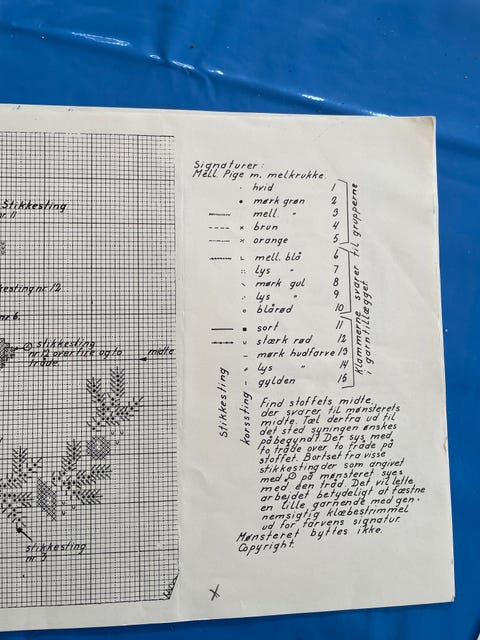 Stikkesting
nr. 11
kesting nr. 12
nr 6.
stikkesting
nr. 12 over fire og to
tråde.
midte
stikkesting
nr. 3
Signaturer:
Mell. Pige m. melkrukke.
hvid 1
mørk grøn 2
mell. " 3
brun 4
orange 5
mell. blå 6
lys " 7
mørk gul 8
lys " 9
blårød 10
sort 11
stærk rød 12
mørk hudfarve 13
lys " 14
gylden 15
Klammerne svarer til grupperne
i garntillægget
Stikkesting
korssting
Find stoffets midte,
der svarer til mønsterets
midte. Tæl derfra ud til
det sted syningen ønskes
påbegyndt. Der sys med
to tråde over to tråde på
stoffet. Bortset fra visse
stikkesting der som angivet
med ① på mønsteret syes
med een tråd. Det vil lette
arbejdet betydeligt at fæstne
en lille garnende med gen-
nemsigtig klæbestrimmel
ud for farvens signatur.
Mønsteret byttes ikke.
Copyright.
x